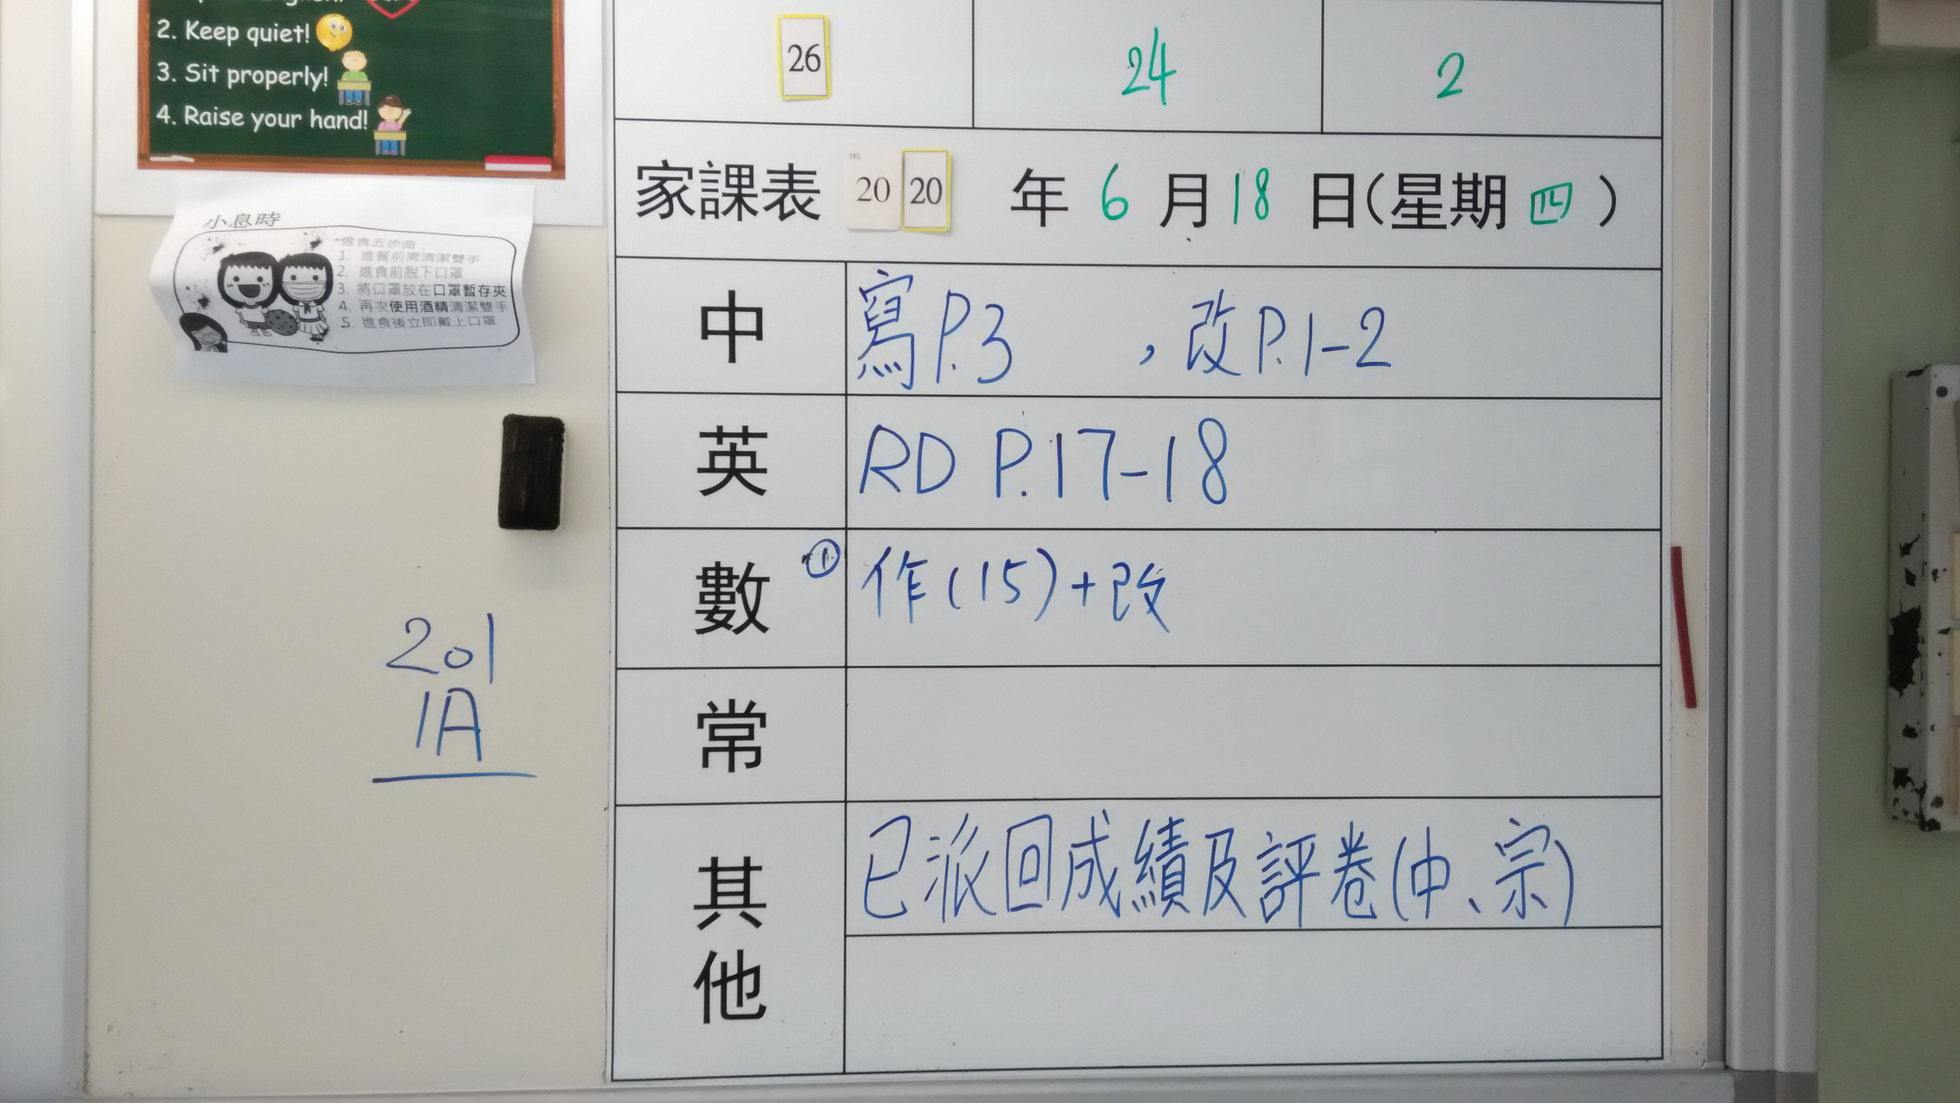 2. Keep quiet!
3. Sit properly!
4. Raise your hand!
小息時
進食五步曲:
1. 進餐前需清潔雙手
2. 進食前脫下口罩
3. 將口罩放在口罩暫存夾
4. 再次使用酒精清潔雙手
5. 進食後立即戴上口罩
201
1A
26 24 2
家課表 20 20 年 6 月 18 日(星期 四 )
中 寫P.3 ，改P.1-2
英 RD P.17-18
數 ① 作(15)+改
常
其他 已派回成績及評卷(中、宗)